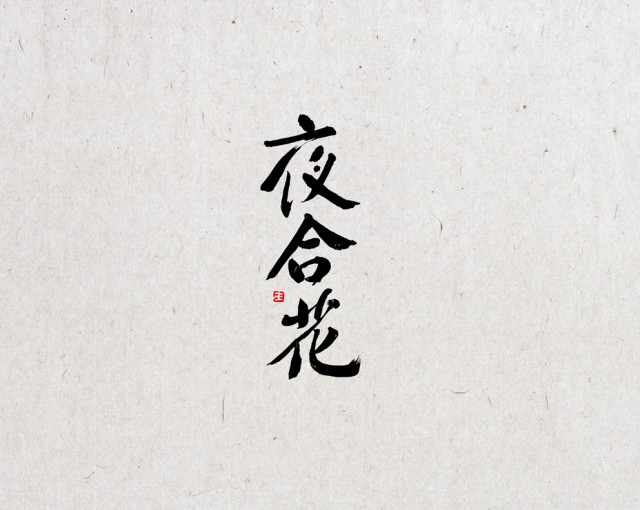 夜合花